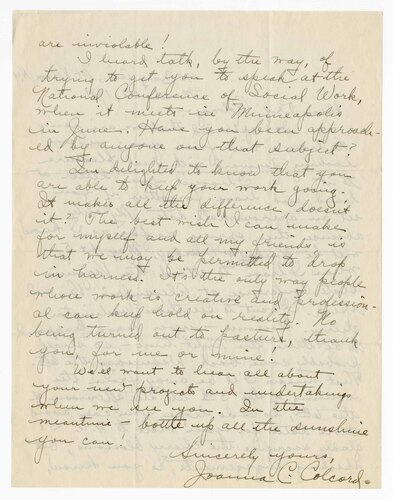 are inviolable!
I heard talk, by the way, of
trying to get you to speak at the
National Conference of Social Work,
when it meets in Minneapolis
in June. Have you been approach-
ed by anyone on that subject?
I'm delighted to know that you
are able to keep your work going.
It makes all the difference, doesn't
it? The best wish I can make
for myself and all my friends is
that we may be permitted to drop
in harness. It's the only way people
whose work is creative and profession-
al can keep hold on reality. No
being turned out to pasture, thank
you, for me or mine!
We'll want to hear all about
your new projects and undertakings
when we see you. In the
meantime - bottle up all the sunshine
you can!
Sincerely yours,
Joanna C. Colcord.